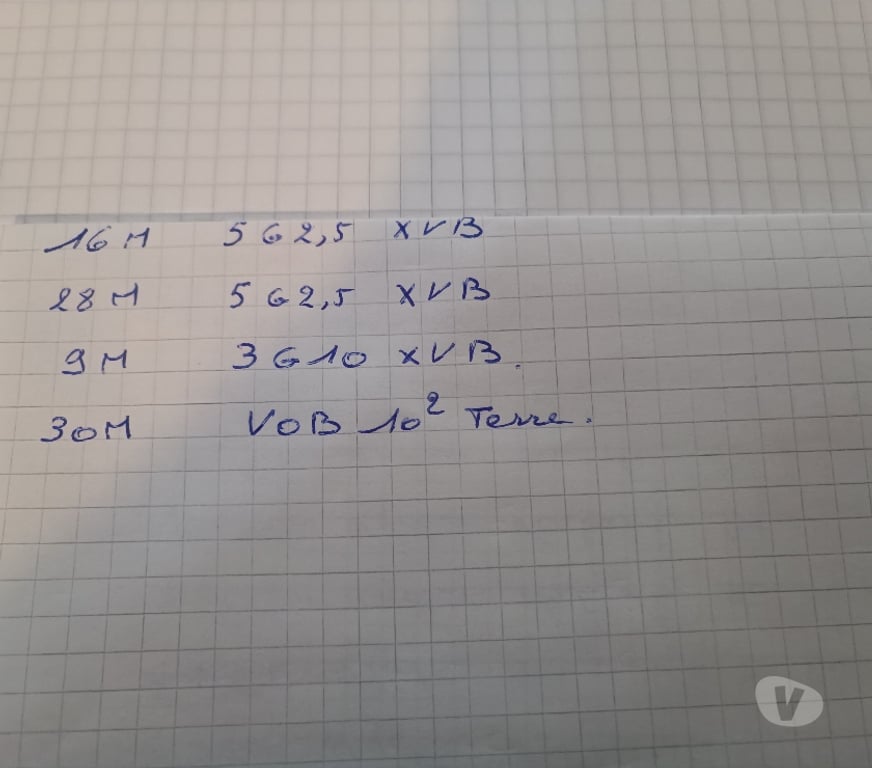 16M 5G2,5 XVB
28M 5G2,5 XVB
9M 3G10 XVB.
30M VOB 10² Terre.
V